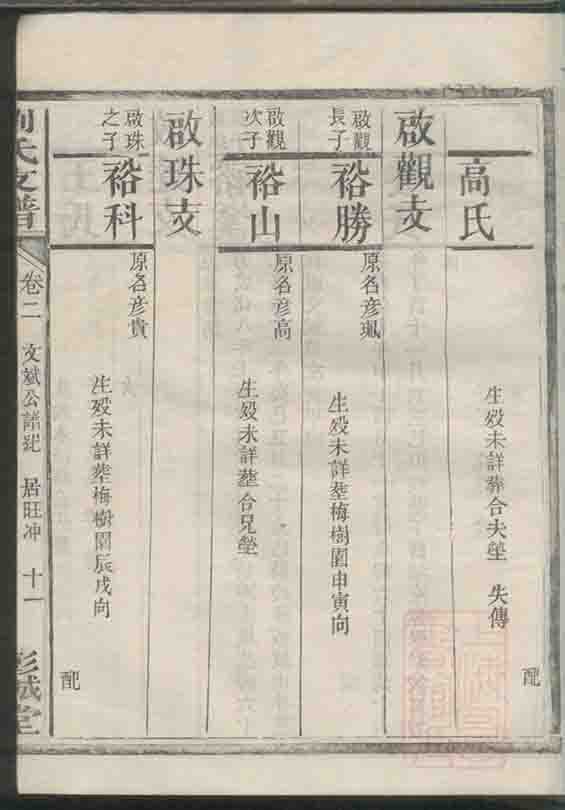 配
高氏
生殁未詳葬合夫塋 失傳
啟觀支
啟觀長子
裕勝
原名彦珮
生殁未詳塟梅樹園申寅向
啟觀次子
裕山
原名彦高
生殁未詳塟合兄塋
啟珠支
啟珠之子
裕科
原名彦貴
生殁未詳塟梅樹園辰戌向
配
劉氏支譜
卷二 文斌公譜 居旺冲 十一
彭城堂